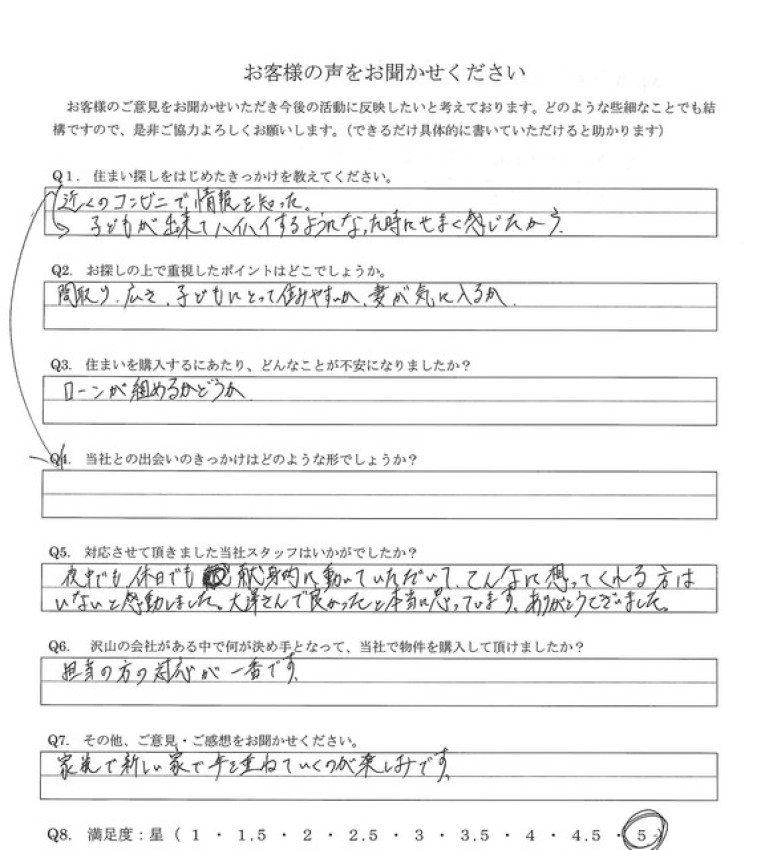 お客様の声をお聞かせください
お客様のご意見をお聞かせいただき今後の活動に反映したいと考えております。どのような些細なことでも結
構ですので、是非ご協力よろしくお願いします。(できるだけ具体的に書いていただけると助かります)
Q1. 住まい探しをはじめたきっかけを教えてください。
近くのコンビニで情報を知った。
子どもが出来てハイハイするようになった時にせまく感じたから
Q2. お探しの上で重視したポイントはどこでしょうか。
間取り、広さ、子どもにとって住みやすいか、妻が気に入るか
Q3. 住まいを購入するにあたり、どんなことが不安になりましたか?
ローンが組めるかどうか
Q4. 当社との出会いのきっかけはどのような形でしょうか?
Q5. 対応させて頂きました当社スタッフはいかがでしたか?
夜中でも休日でも献身的に動いていただいて、こんなに想ってくれる方は
いないと感動しました。大澤さんで良かったと本当に思っています。ありがとうございました。
Q6. 沢山の会社がある中で何が決め手となって、当社で物件を購入して頂けましたか?
担当の方の対応が一番です。
Q7. その他、ご意見・ご感想をお聞かせください。
家族で新しい家で年を重ねていくのが楽しみです。
Q8. 満足度：星 ( 1 ・ 1.5 ・ 2 ・ 2.5 ・ 3 ・ 3.5 ・ 4 ・ 4.5 ・ 5 )